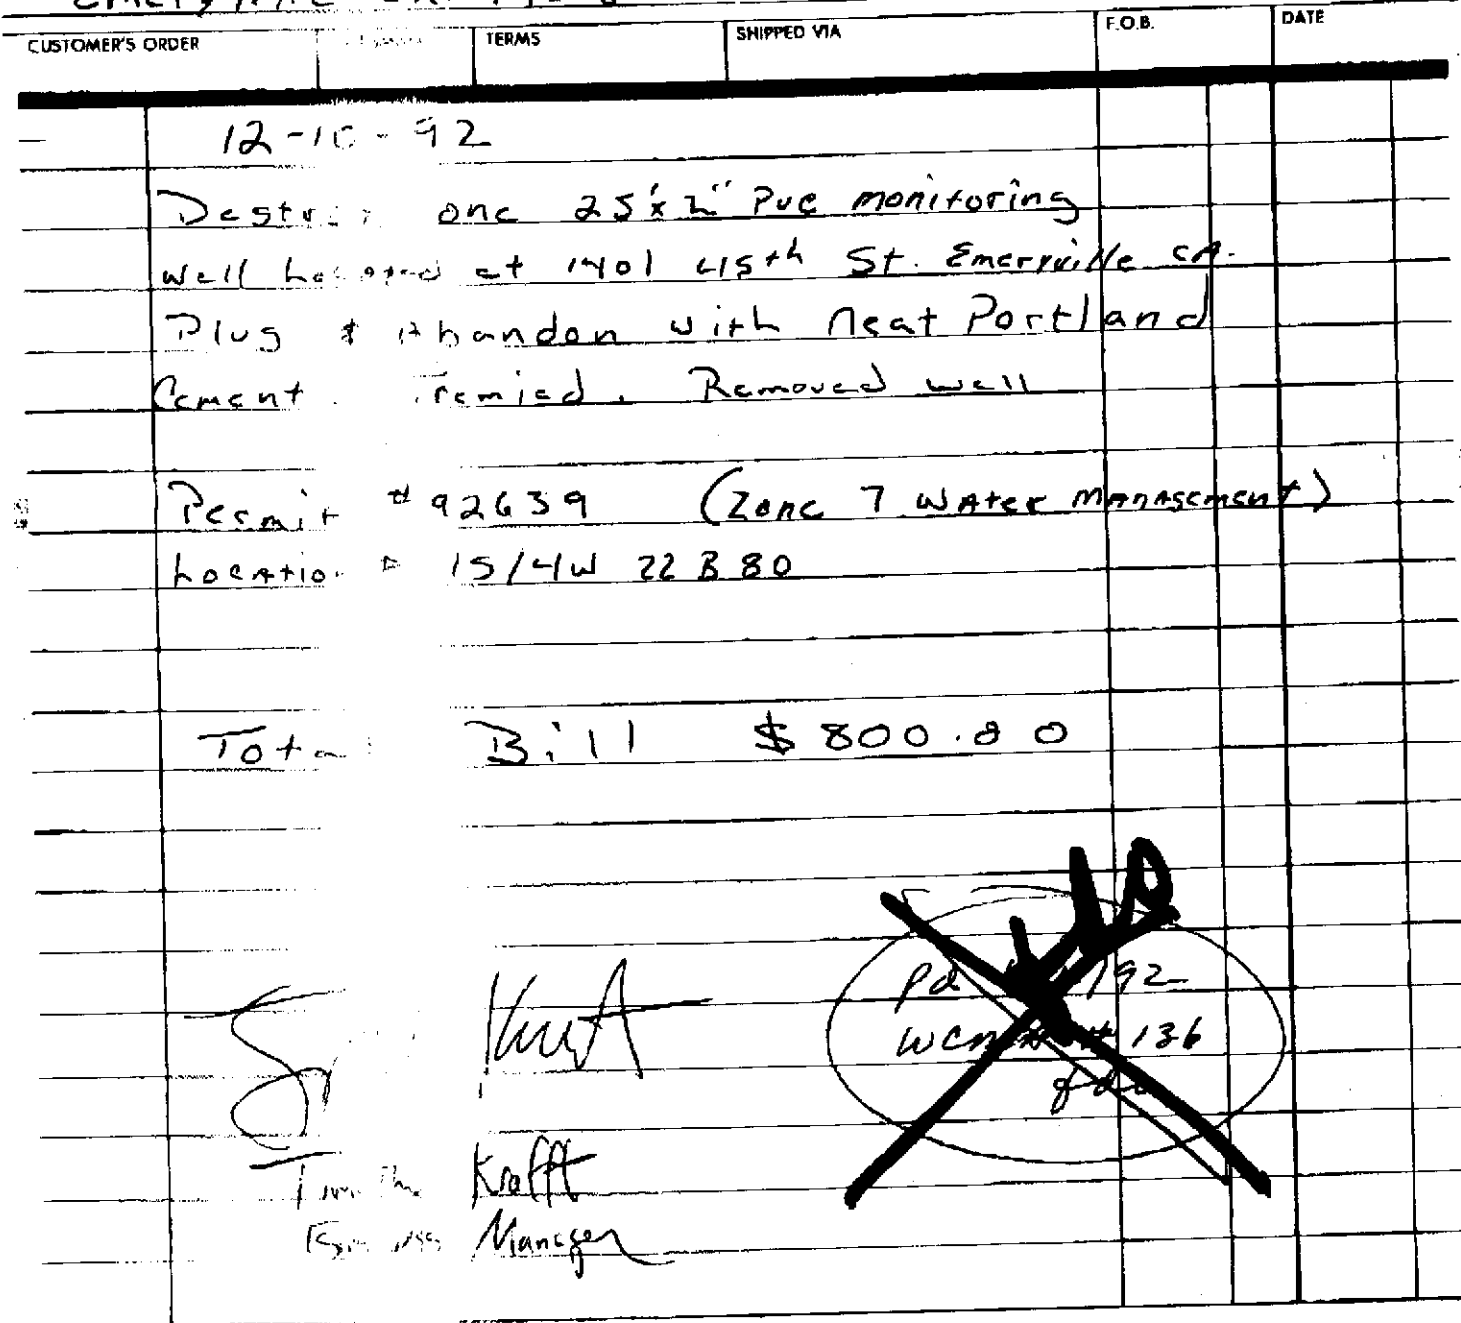 CUSTOMER'S ORDER TERMS SHIPPED VIA F.O.B. DATE
12-10-92
one 25'x2" PVC monitoring
Well Located at 1401 45th St. Emeryville CA.
Plug & Abandon with neat Portland
Cement Tremied. Removed well
Permit # 92639 (Zone 7 Water Management)
Location # 1S/4W 22 B 80
Total Bill $ 800.00
Pd 92
136
Krafft
Manager